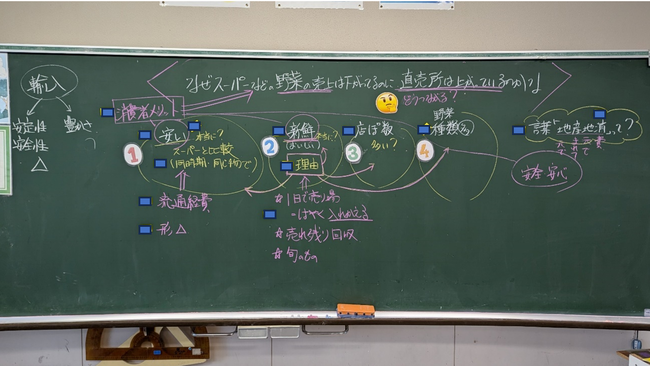 なぜスーパーなどの野菜の売上は下がってるのに直売所は上がっているのか？
どうつながる？
輸入
安定性
安全性
△
豊かさ
？
消費者メリット
1
安い
本当に？
スーパーと比較
(同時期・同じ物で)
流通経費
形△
2
新鮮
本当に？
理由
☆1日で売り場
はやく入れかえる
☆売れ残り回収
☆旬のもの
3
店ぽ数
多い？
4
野菜
種類
言葉「地産地消」って？
安全安心